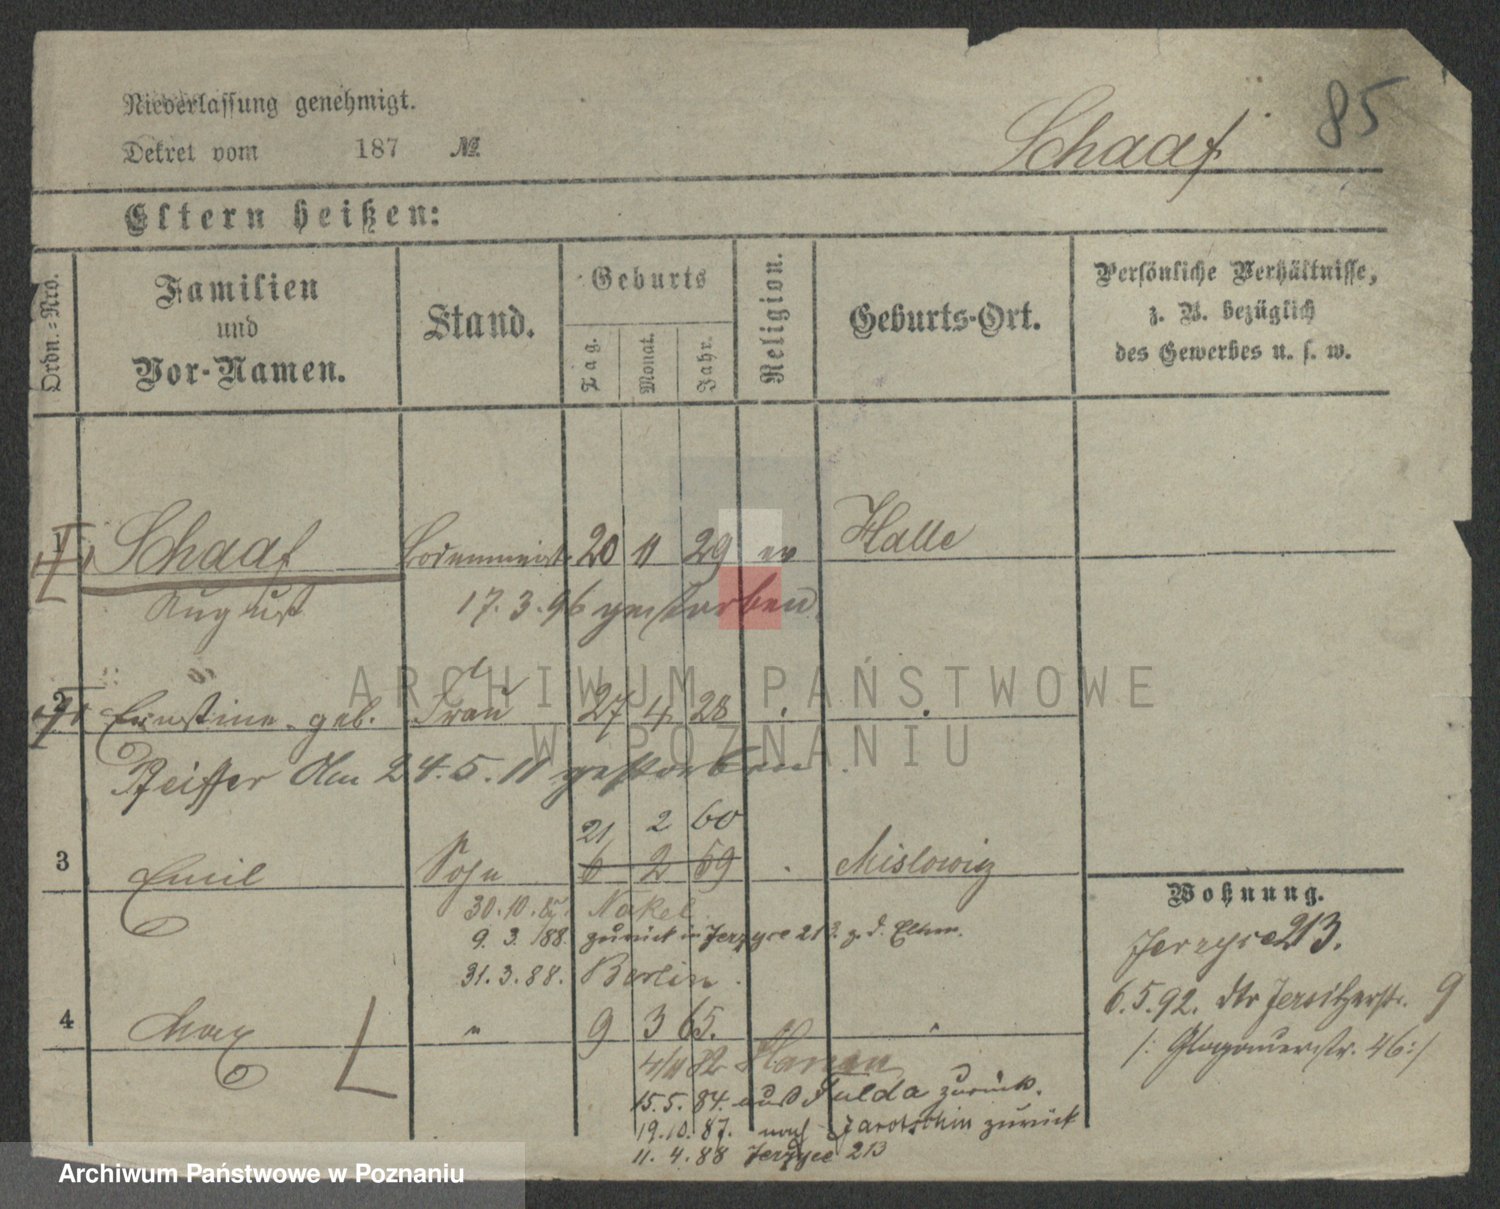 85
Niederlassung genehmigt.
Schaaf
Dekret vom 187 №
Eltern heißen:
Ordn.-Nro.
Familien
und
Vor-Namen.
Stand.
Geburts
Tag.
Monat.
Jahr.
Religion.
Geburts-Ort.
Persönliche Verhältnisse,
z. B. bezüglich
des Gewerbes u. s. w.
1 Schaaf 20 11 29 ev Halle
August 17.3.96 gestorben.
2 Ernstine geb. Frau 27 4 28
Pfeiffer Am 24.5.11 gestorben.
21 2 60
3 Emil Sohn 6 2 59 Mislowitz
Wohnung.
Jerzyce 213.
30.10.87 Nakel
9.3.88 zurück in Jerzyce 213. z. d. Eltern.
31.3.88. Berlin.
6.5.92. dto Jersitzerstr. 9
/: Glogauerstr. 46 :/
4 Max " 9 3 65. "
4/11 82 Hanau
15.5.84. aus Fulda zurück.
19.10.87. nach Jarotschin zurück
11.4.88 Jerzyce 213
ARCHIWUM PAŃSTWOWE
W POZNANIU
Archiwum Państwowe w Poznaniu